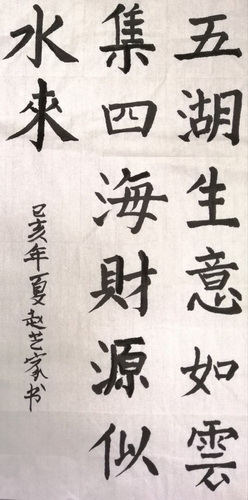 五湖生意如雲
集四海財源似
水來
己亥年夏赵艺家书